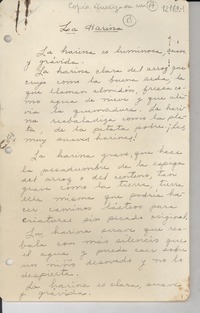 La Harina
La harina es luminosa, suave
y grávida.
La harina clara del arroz, que
cruje como la buena seda; la
que llaman almidón, fresca co-
mo agua de nieve y que alivia
la quemadura. La hari-
na resbaladiza como la pla-
ta, de la patata pobre. ¡Las
muy suaves harinas!
La harina grave, que hace
la pesadumbre de la espiga
del arroz o del centeno, tan
grave como la tierra, tierra
ella misma que podría ha-
cer caminos lácteos para
criaturas sin pecado original.
La harina suave que res-
bala con más silencio que
el agua y puede caer sobre
un niño desnudo y no lo
despierta.
La harina es clara, suave
y grávida.